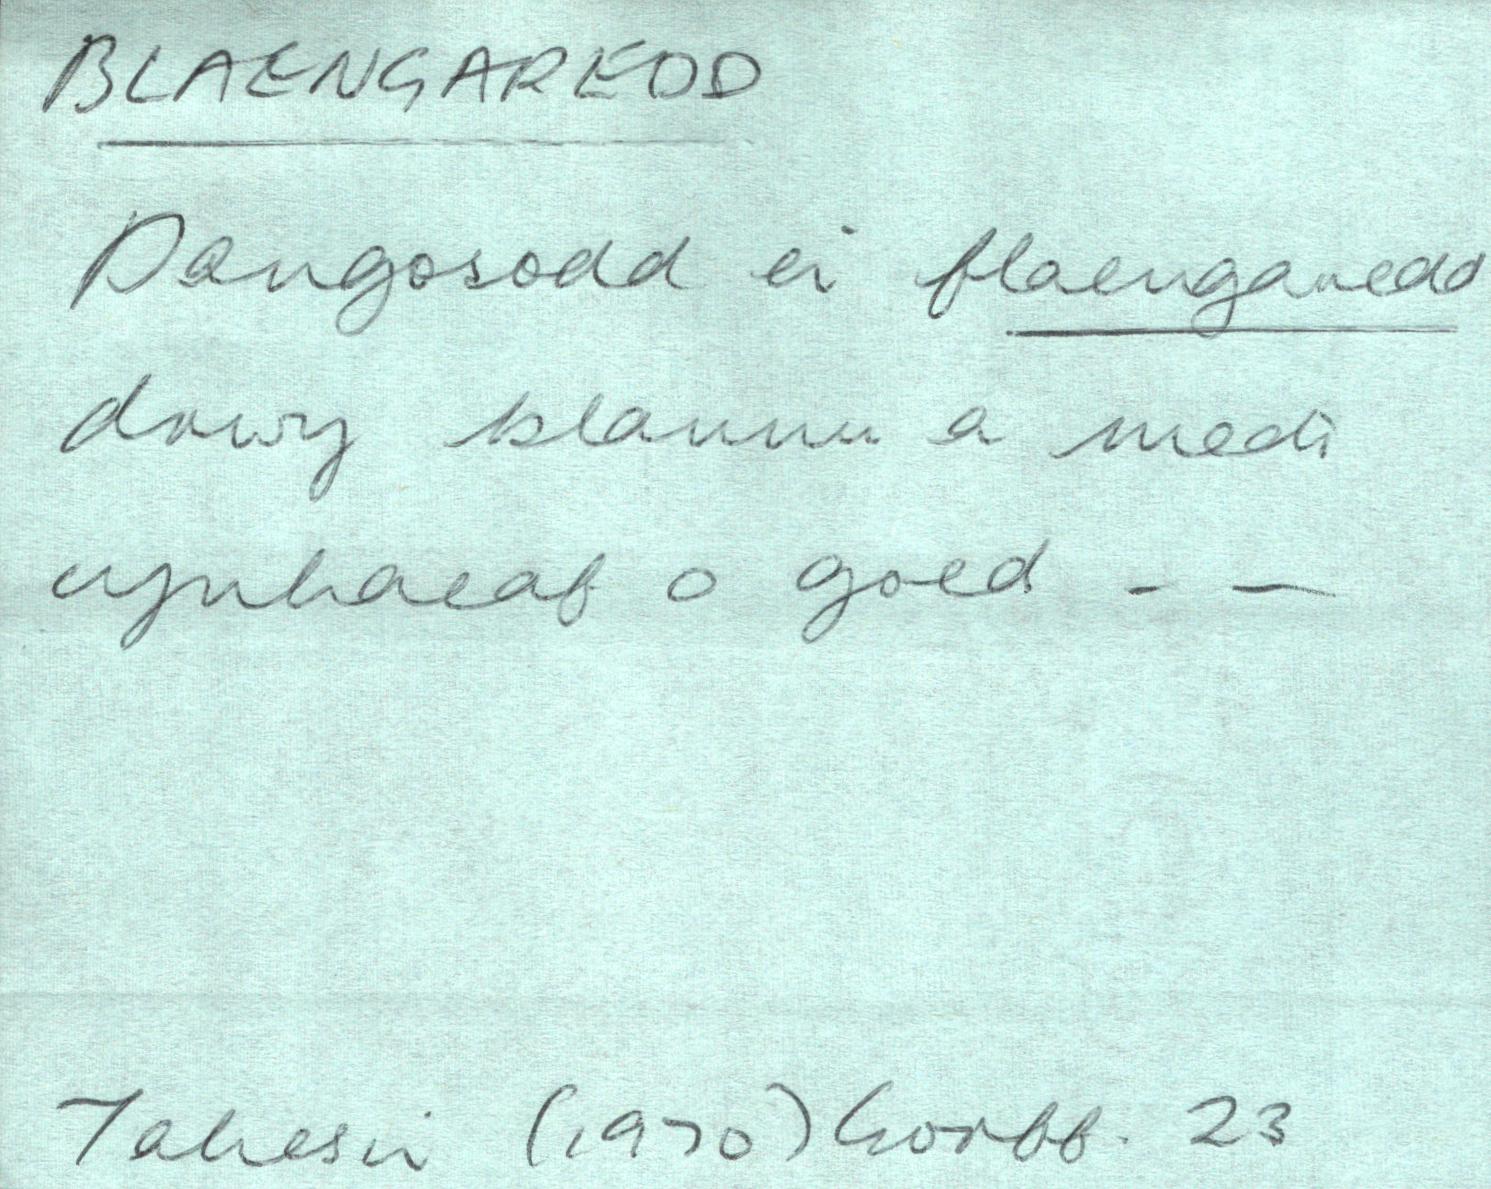 BLAENGAREDD
Dangosodd ei flaengaredd
drwy blannu a medi
cynhaeaf o goed - —
Taliesin (1970) Gorff. 23